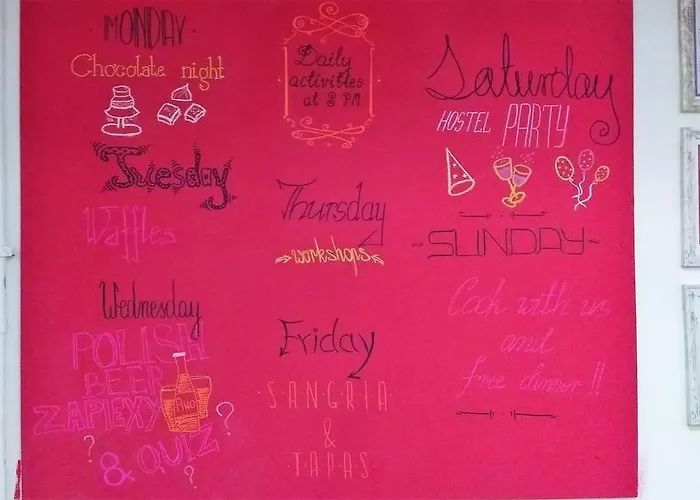 MONDAY
Chocolate night
Tuesday
Waffles
Wednesday
POLISH
BEER
ZAPIEXY
& QUIZ
Daily
activities
at 8 P.M.
Thursday
workshops
Friday
SANGRIA
&
TAPAS
Saturday
HOSTEL PARTY
SUNDAY
Cook with us
and
free dinner!!